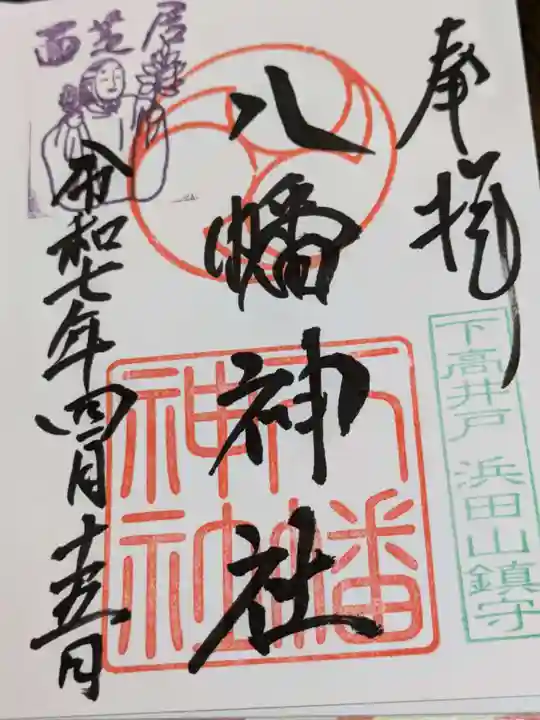 奉拝
下高井戸 浜田山鎮守
八幡神社
八幡神社
令和七年四月十五日
面芝居